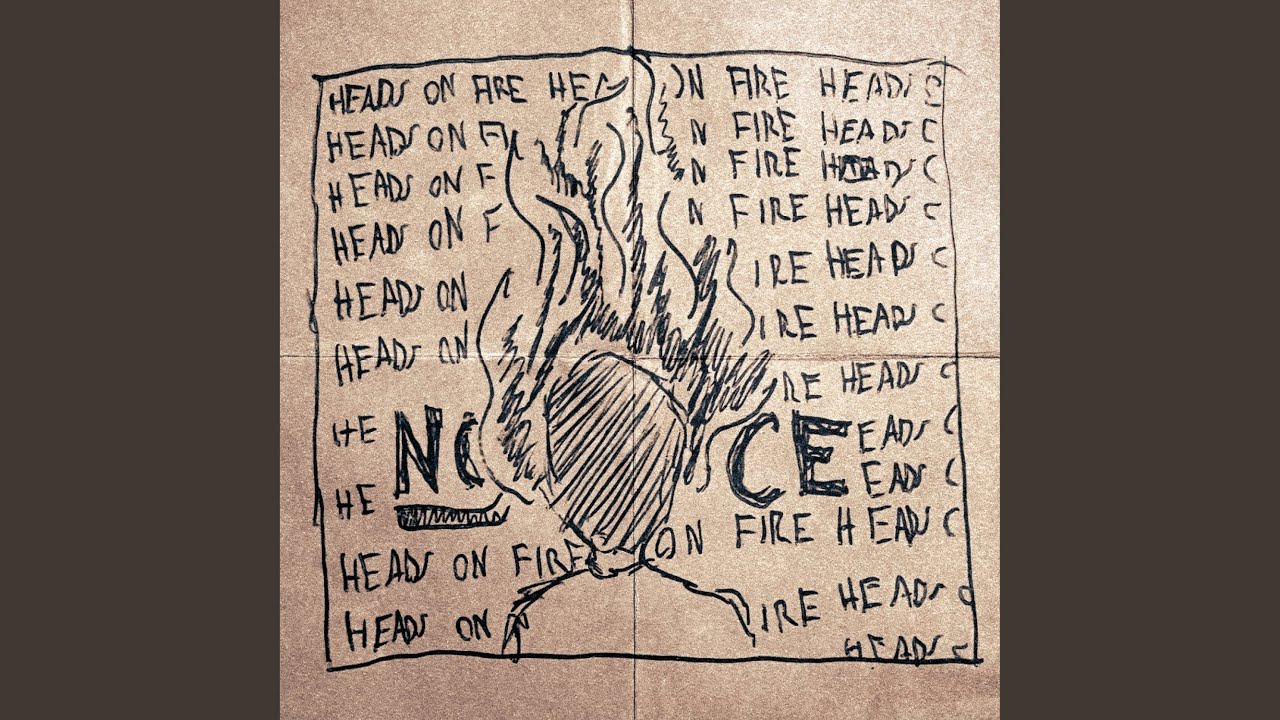 HEADS ON FIRE HEA ON FIRE HEADS O
HEADS ON FI N FIRE HEADS C
HEADS ON F N FIRE HEADS C
HEADS ON F N FIRE HEADS C
HEADS ON IRE HEADS C
HEADS ON IRE HEADS C
RE HEADS C
HE NO CE EADS C
HE EADS C
ON FIRE HEADS C
HEADS ON FIRE
HEADS ON IRE HEADS O
HEADS C